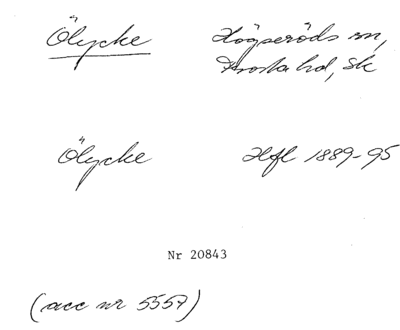 Ölycke Högseröds sn,
Frosta hd, Sk
Ölycke Hfl 1889-95
Nr 20843
(acc nr 5557)